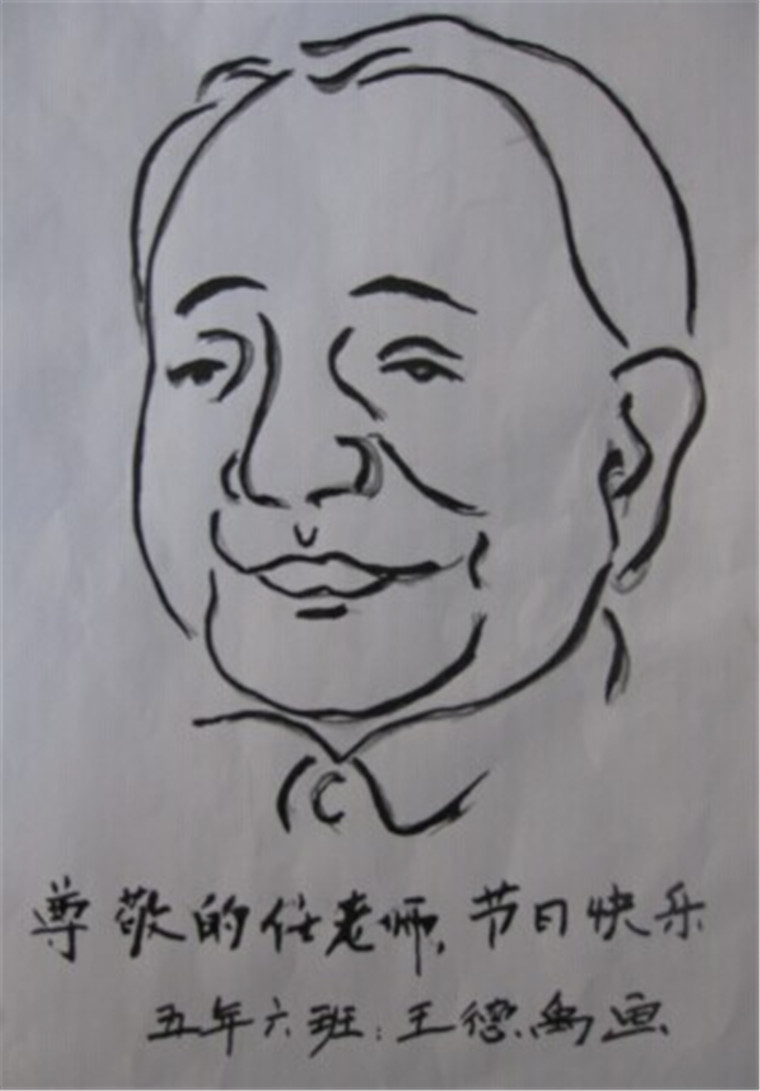 尊敬的任老师,节日快乐
五年六班:王德禹画